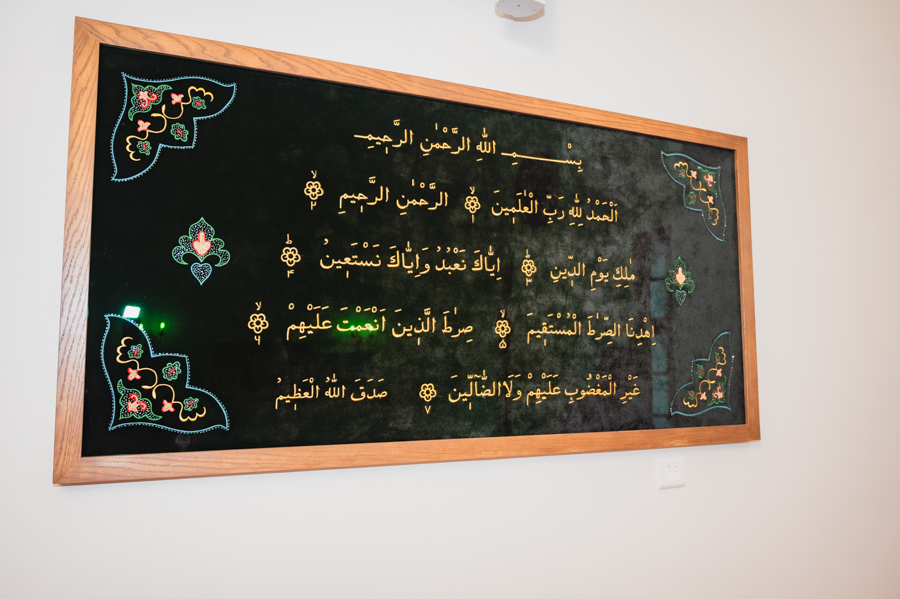 بِسْــــــمِ اللّٰهِ الرَّحْمٰنِ الرَّحٖيمِ
اَلْحَمْدُ لِلّٰهِ رَبِّ الْعٰلَمٖينَ ۙ ١ الرَّحْمٰنِ الرَّحٖيمِ ۙ ٢
مٰلِكِ يَوْمِ الدّٖينِ ٣ اِيَّاكَ نَعْبُدُ وَاِيَّاكَ نَسْتَعٖينُ ۜ ٤
اِهْدِنَا الصِّرٰطَ الْمُسْتَقٖيمَ ۙ ٥ صِرٰطَ الَّذٖينَ اَنْعَمْتَ عَلَيْهِمْ ۙ ٦
غَيْرِ الْمَغْضُوبِ عَلَيْهِمْ وَلَا الضَّٓالّٖينَ ٧ صَدَقَ اللّٰهُ الْعَظٖيمُ